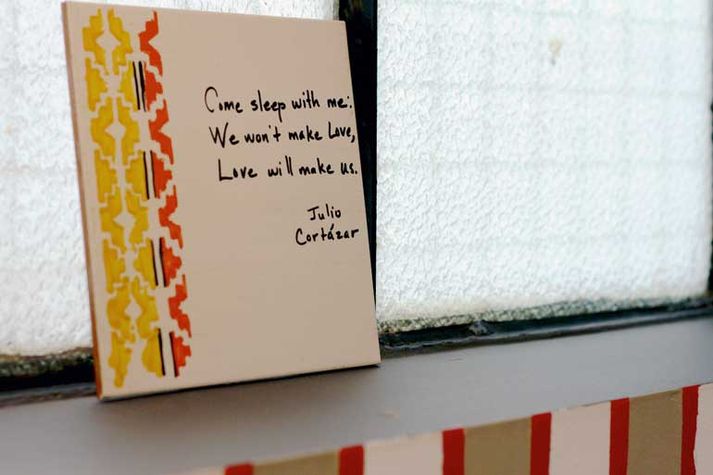 Come sleep with me:
We won't make Love,
Love will make us.
Julio
Cortázar